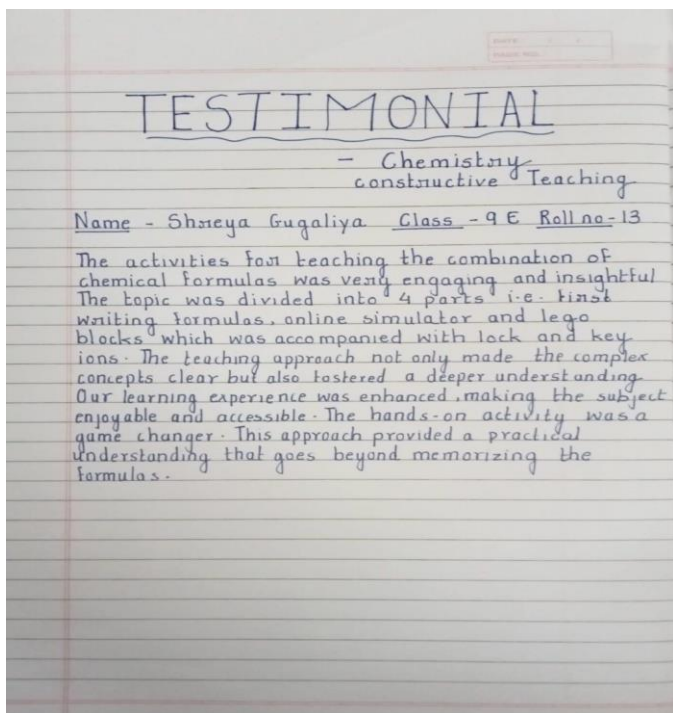 TESTIMONIAL
- Chemistry
constructive Teaching
Name - Shreya Gugaliya Class - 9 E Roll no - 13
The activities for teaching the combination of
chemical formulas was very engaging and insightful
The topic was divided into 4 parts i.e. first
writing formulas, online simulator and lego
blocks which was accompanied with lock and key
ions. The teaching approach not only made the complex
concepts clear but also fostered a deeper understanding
Our learning experience was enhanced, making the subject
enjoyable and accessible. The hands-on activity was a
game changer. This approach provided a practical
understanding that goes beyond memorizing the
formulas.